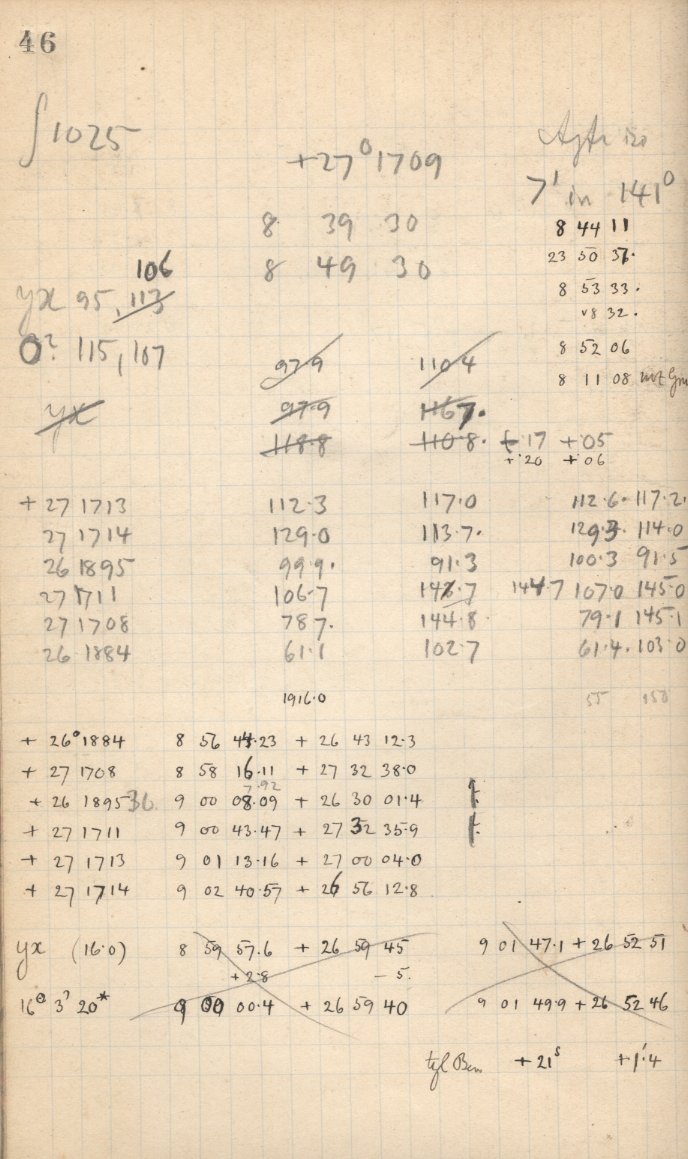 46
∫1025
+27° 1709
7' in 141°
8 39 30
8 44 11
8 49 30
23 50 37.
106
yx 95, 113
8 53 33.
v8 32.
0? 115, 107
8 52 06
97.9 110.4
8 11 08 not Gm
yx 97.9 116.7.
118.8 110.8. +.17 +.05
+.20 +.06
+ 27 1713 112.3 117.0 112.6. 117.2.
27 1714 129.0 113.7. 129.3. 114.0
26 1895 99.9. 91.3 100.3 91.5
27 1711 106.7 147.7 144.7 107.0 145.0
27 1708 78.7. 144.8. 79.1 145.1
26 1884 61.1 102.7 61.4. 103.0
1916.0
+ 26° 1884 8 56 44.23 + 26 43 12.3
+ 27 1708 8 58 16.11 + 27 32 38.0
7.92
+ 26 1895 36 9 00 08.09 + 26 30 01.4
+ 27 1711 9 00 43.47 + 27 32 35.9
+ 27 1713 9 01 13.16 + 27 00 04.0
+ 27 1714 9 02 40.57 + 26 56 12.8
yx (16.0) 8 59 57.6 + 26 59 45 9 01 47.1 + 26 52 51
+ 2.8 - 5.
16ᵈ 3? 20* 9 00 00.4 + 26 59 40 9 01 49.9 + 26 52 46
+21ˢ +1'.4